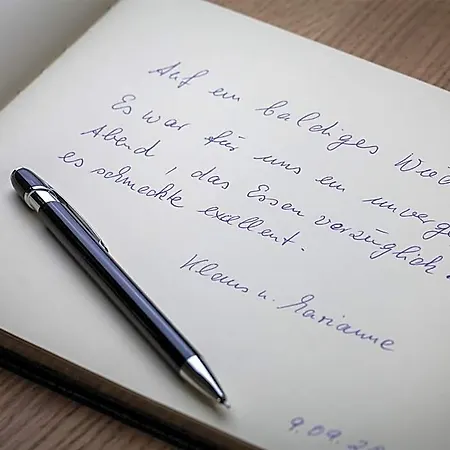 Auf ein baldiges
Es war für uns ein
Abend, das Essen vorzüglich.
es schmeckte exellent.
Klaus u. Marianne
9.09.